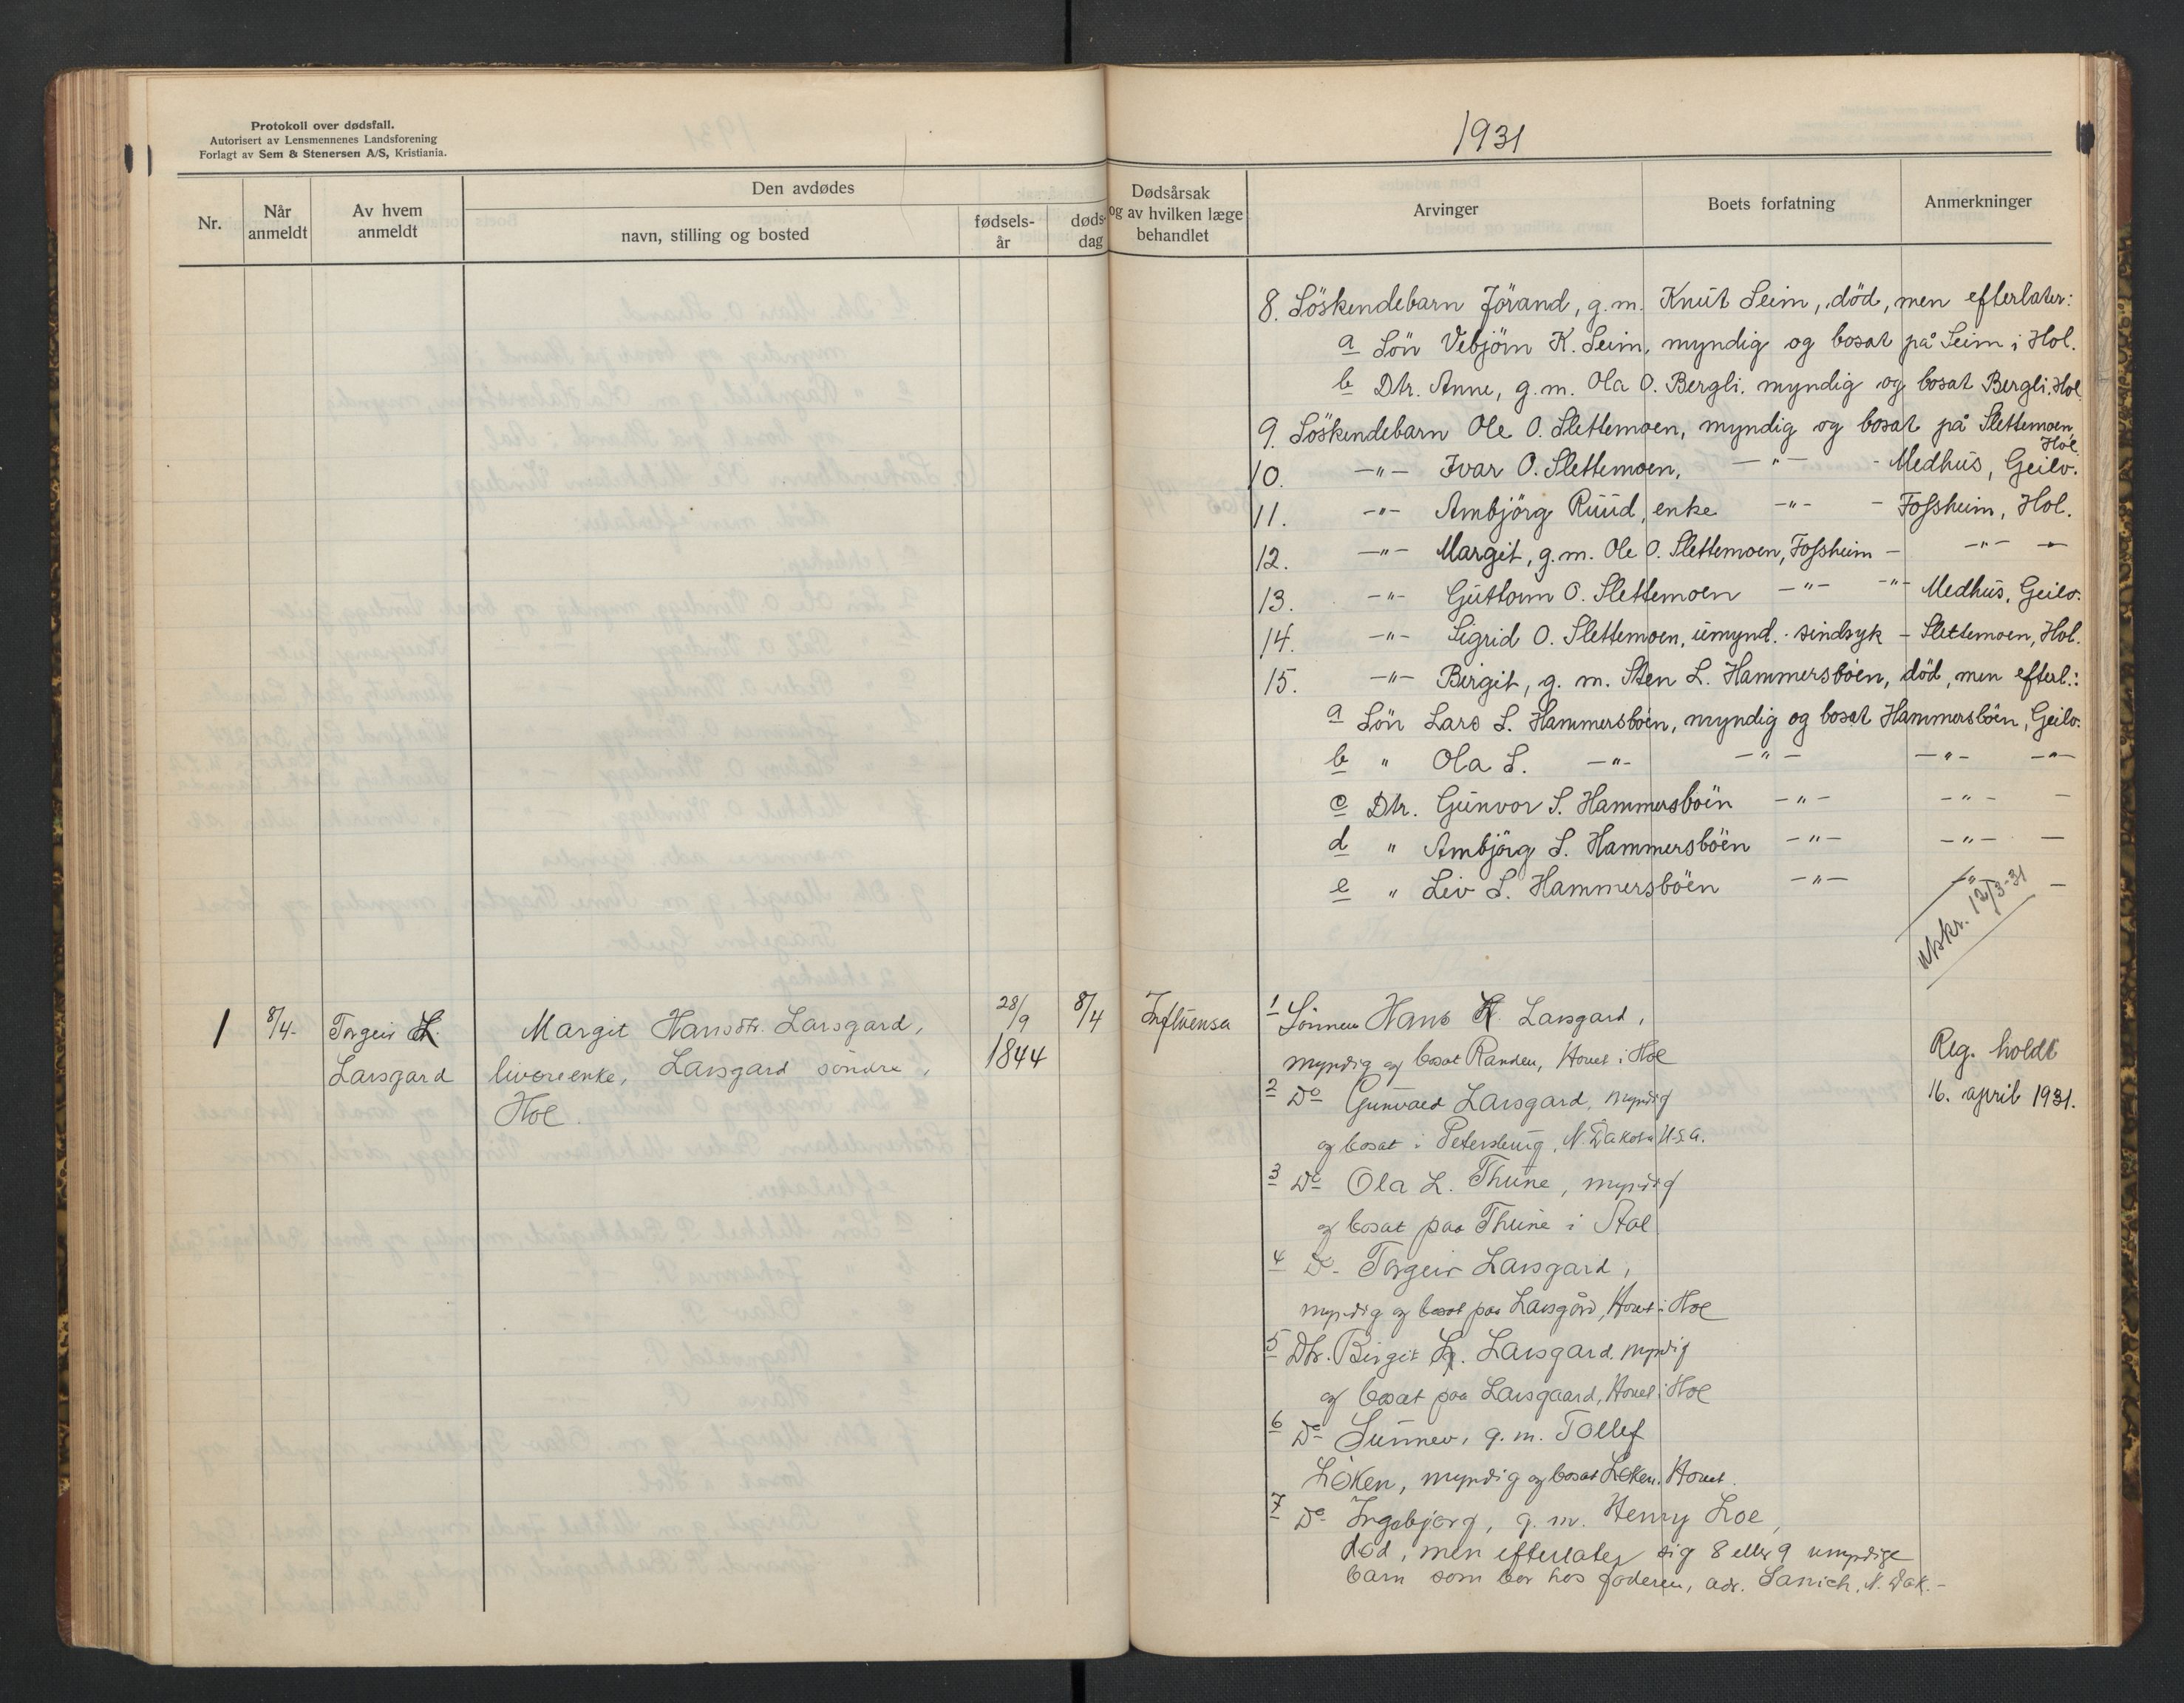 Protokoll over dødsfall.
Autorisert av Lensmennenes Landsforening
Forlagt av Sem & Stenersen A/S, Kristiania.
Nr.
Når anmeldt
Av hvem anmeldt
Den avdødes
navn, stilling og bosted
fødsels-år
døds-dag
1 8/4- Torgeir L. Margit Hansdtr. Larsgard, 28/9 8/4
Larsgard enke, Larsgard söndre, 1844
Hol.
1931
Dødsårsak og av hvilken læge behandlet
Arvinger
Boets forfatning
Anmerkninger
8. Söskendebarn Jörand, g.m. Knut Seim, död, men efterlater:
a Sön Vebjörn K. Seim, myndig og bosat på Seim i Hol.
b Dtr. Anne, g.m. Ola O. Bergli, myndig og bosat Bergli, Hol
9. Söskendebarn Ole O. Slettemoen, myndig og bosat på Slettemoen
Hol.
10. -"- Ivar O. Slettemoen, -"- - Medhus, Geilo.
11. -"- Ambjörg Ruud, enke -"- - Fossheim, Hol.
12. -"- Margit, g.m. Ole O. Slettemoen, Fossheim - -"- -
13. -"- Guttorm O. Slettemoen -"- -"- Medhus, Geilo.
14. -"- Sigrid O. Slettemoen, umynd. - sindsyk - Slettemoen, Hol.
15. -"- Birgit, g. m. Sten L. Hammersböen, död, men efterl.:
a Sön Lars S. Hammersböen, myndig og bosat Hammersböen, Geilo.
b " Ola S. -"- -"- -"- -"-
c Dtr. Gunvor S. Hammersböen -"- -"- -
d " Ambjörg S. Hammersböen -"- -"- -
e " Liv S. Hammersböen -"- -"- -
Utskr. 12/3-31
Influensa
1 Sönnen Hans Larsgard,
myndig og bosat Randen, Hovet i Hol
2 Do Gunvald Larsgard, myndig
og bosat i Petersburg, N. Dakota U.S.A.
3 Do Ola L. Thune, myndig
og bosat paa Thune i Aal
4 Do- Torgeir Larsgard,
myndig og bosat paa Larsgård, Hovet i Hol
5 Dtr. Birgit L. Larsgard, myndig
og bosat paa Larsgaard, Hovet i Hol
6 Do Sunnev, g.m. Tollef
Löken, myndig og bosat Löken, Hovet.
7 Do- Ingebjørg, g. m. Henry Loe,
död, men efterlater sig 8 eller 9 umyndige
barn som bor hos faderen, adr. N. Dak.-
Reg. holdt
16. april 1931.